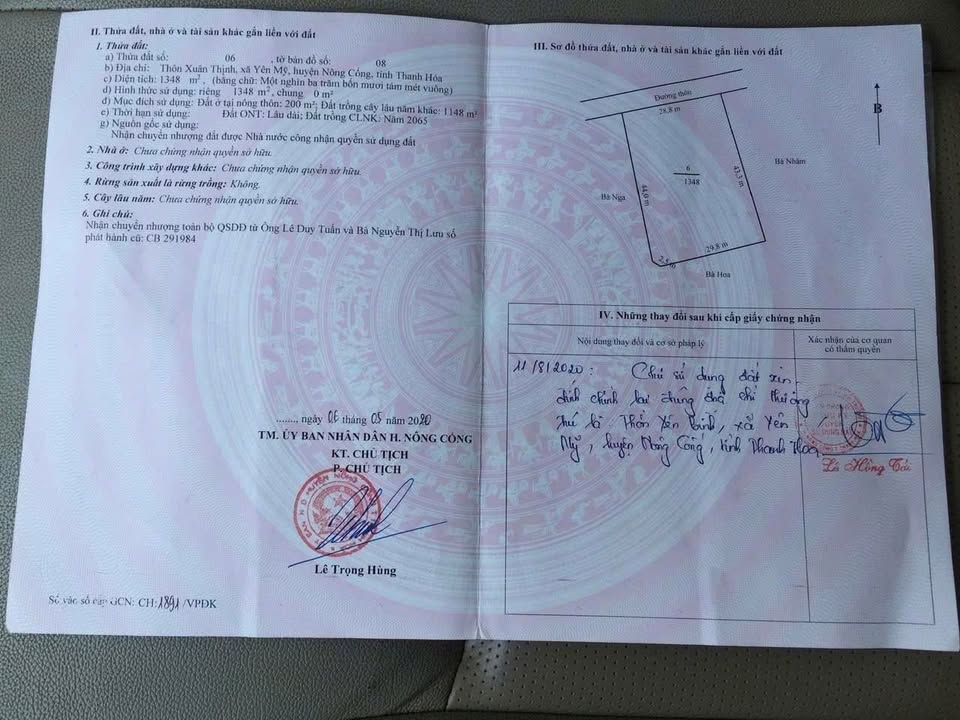 II. Thửa đất, nhà ở và tài sản khác gắn liền với đất
1. Thửa đất:
a) Thửa đất số: 06 , tờ bản đồ số: 08
b) Địa chỉ: Thôn Xuân Thịnh, xã Yên Mỹ, huyện Nông Cống, tỉnh Thanh Hóa
c) Diện tích: 1348 m², (bằng chữ: Một nghìn ba trăm bốn mươi tám mét vuông)
d) Hình thức sử dụng: riêng 1348 m², chung 0 m²
đ) Mục đích sử dụng: Đất ở tại nông thôn: 200 m²; Đất trồng cây lâu năm khác: 1148 m²
e) Thời hạn sử dụng: Đất ONT: Lâu dài; Đất trồng CLNK: Năm 2065
g) Nguồn gốc sử dụng:
Nhận chuyển nhượng đất được Nhà nước công nhận quyền sử dụng đất
2. Nhà ở: Chưa chứng nhận quyền sở hữu.
3. Công trình xây dựng khác: Chưa chứng nhận quyền sở hữu.
4. Rừng sản xuất là rừng trồng: Không.
5. Cây lâu năm: Chưa chứng nhận quyền sở hữu.
6. Ghi chú:
Nhận chuyển nhượng toàn bộ QSDĐ từ Ông Lê Duy Tuấn và Bà Nguyễn Thị Lưu số
phát hành cũ: CB 291984
........, ngày 06 tháng 05 năm 2020
TM. ỦY BAN NHÂN DÂN H. NÔNG CỐNG
KT. CHỦ TỊCH
P. CHỦ TỊCH
Lê Trọng Hùng
Số vào sổ cấp GCN: CH:1891/VPĐK
III. Sơ đồ thửa đất, nhà ở và tài sản khác gắn liền với đất
Đường thôn
28.8 m
B
Bà Nhâm
6
1348
43.3 m
Bà Nga
44.0 m
29.8 m
2.5 m
Bà Hoa
IV. Những thay đổi sau khi cấp giấy chứng nhận
Nội dung thay đổi và cơ sở pháp lý
Xác nhận của cơ quan
có thẩm quyền
11/8/2020: Chủ sử dụng đất xin
đính chính lại địa chỉ thường
trú là: Thôn Yên, xã Yên
Mỹ, huyện Nông Cống, tỉnh Thanh Hóa